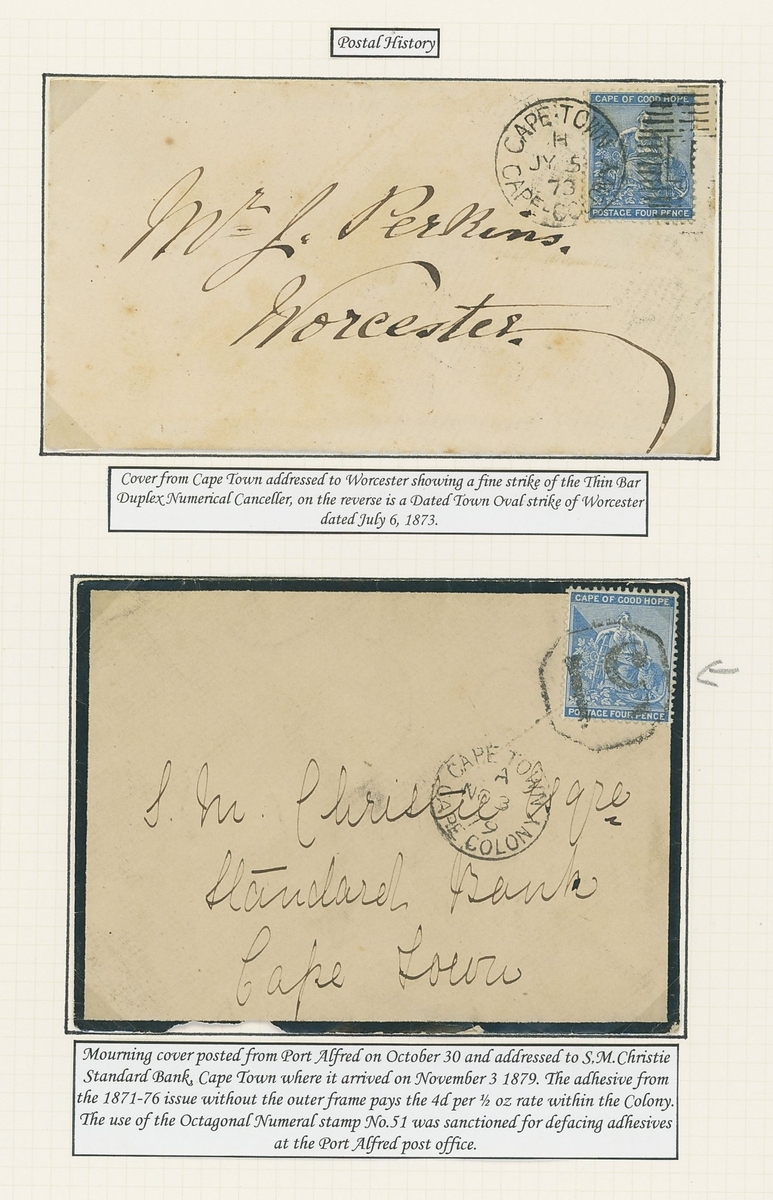 Postal History
CAPE OF GOOD HOPE
CAPE-TOWN
H
JY 5
73
CAPE-COLONY
POSTAGE FOUR PENCE
Mr J. Perkins.
Worcester.
Cover from Cape Town addressed to Worcester showing a fine strike of the Thin Bar
Duplex Numerical Canceller, on the reverse is a Dated Town Oval strike of Worcester
dated July 6, 1873.
CAPE OF GOOD HOPE
51
POSTAGE FOUR PENCE
CAPE TOWN
A
NO 3
79
CAPE COLONY
S. M. Christie Esqre
Standard Bank
Cape Town
Mourning cover posted from Port Alfred on October 30 and addressed to S.M.Christie
Standard Bank, Cape Town where it arrived on November 3 1879. The adhesive from
the 1871-76 issue without the outer frame pays the 4d per ½ oz rate within the Colony.
The use of the Octagonal Numeral stamp No.51 was sanctioned for defacing adhesives
at the Port Alfred post office.